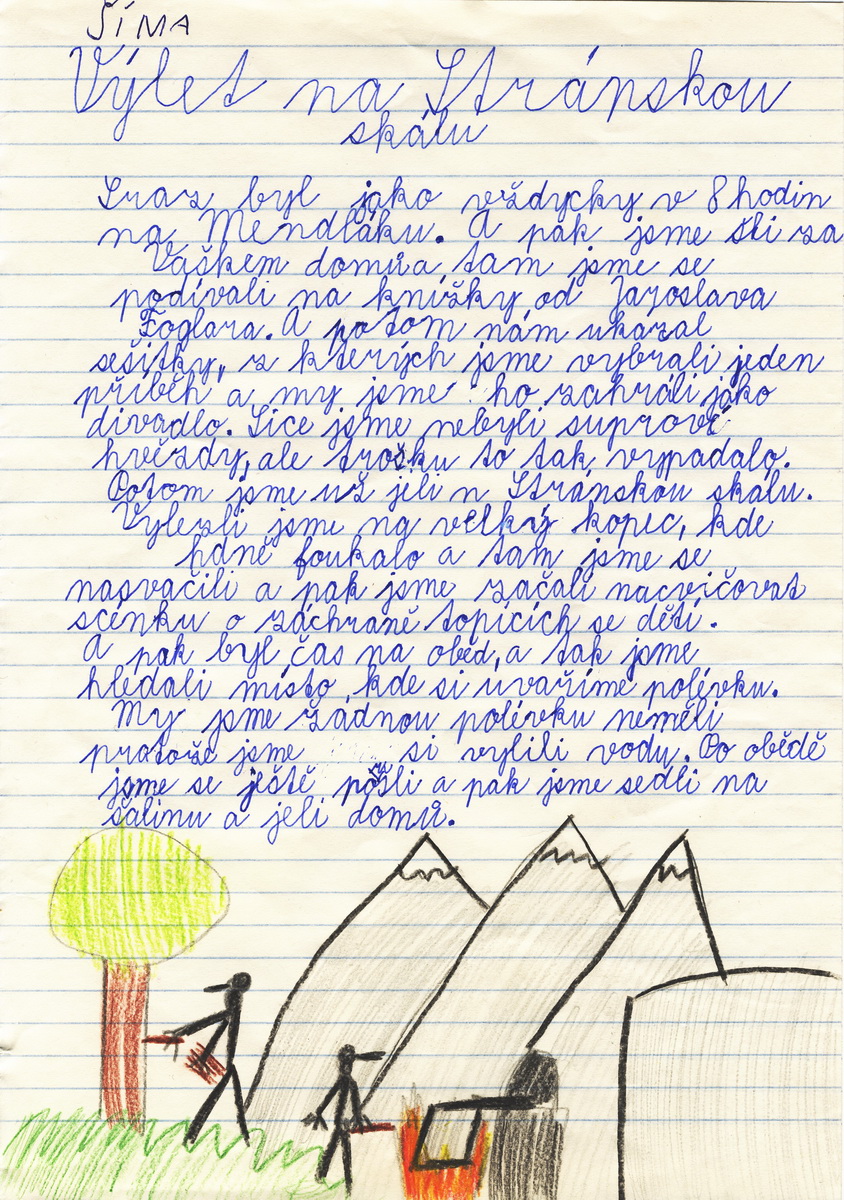 ŠÍMA
Výlet na Stránskou
skálu
Sraz byl jako vždycky v 8 hodin
na Mendláku. A pak jsme šli za
Vaškem domů a tam jsme se
podívali na knížky od Jaroslava
Foglara. A potom nám ukazal
sešitky, z kterých jsme vybrali jeden
příběh a my jsme ho zahráli jako
divadlo. Sice jsme nebyli suprové
hvězdy, ale trošku to tak vypadalo.
Potom jsme už jeli n Stránskou skálu.
Vylezli jsme na velký kopec, kde
hdně foukalo a tam jsme se
nasvačili a pak jsme začali nacvičovat
scénku o záchraně topících se dětí.
A pak byl čas na oběd, a tak jsme
hledali místo, kde si uvaříme polévku.
My jsme žádnou polévku neměli
protože jsme si vylili vodu. Po obědě
jsme se ještě prošli a pak jsme sedli na
šalinu a jeli domů.